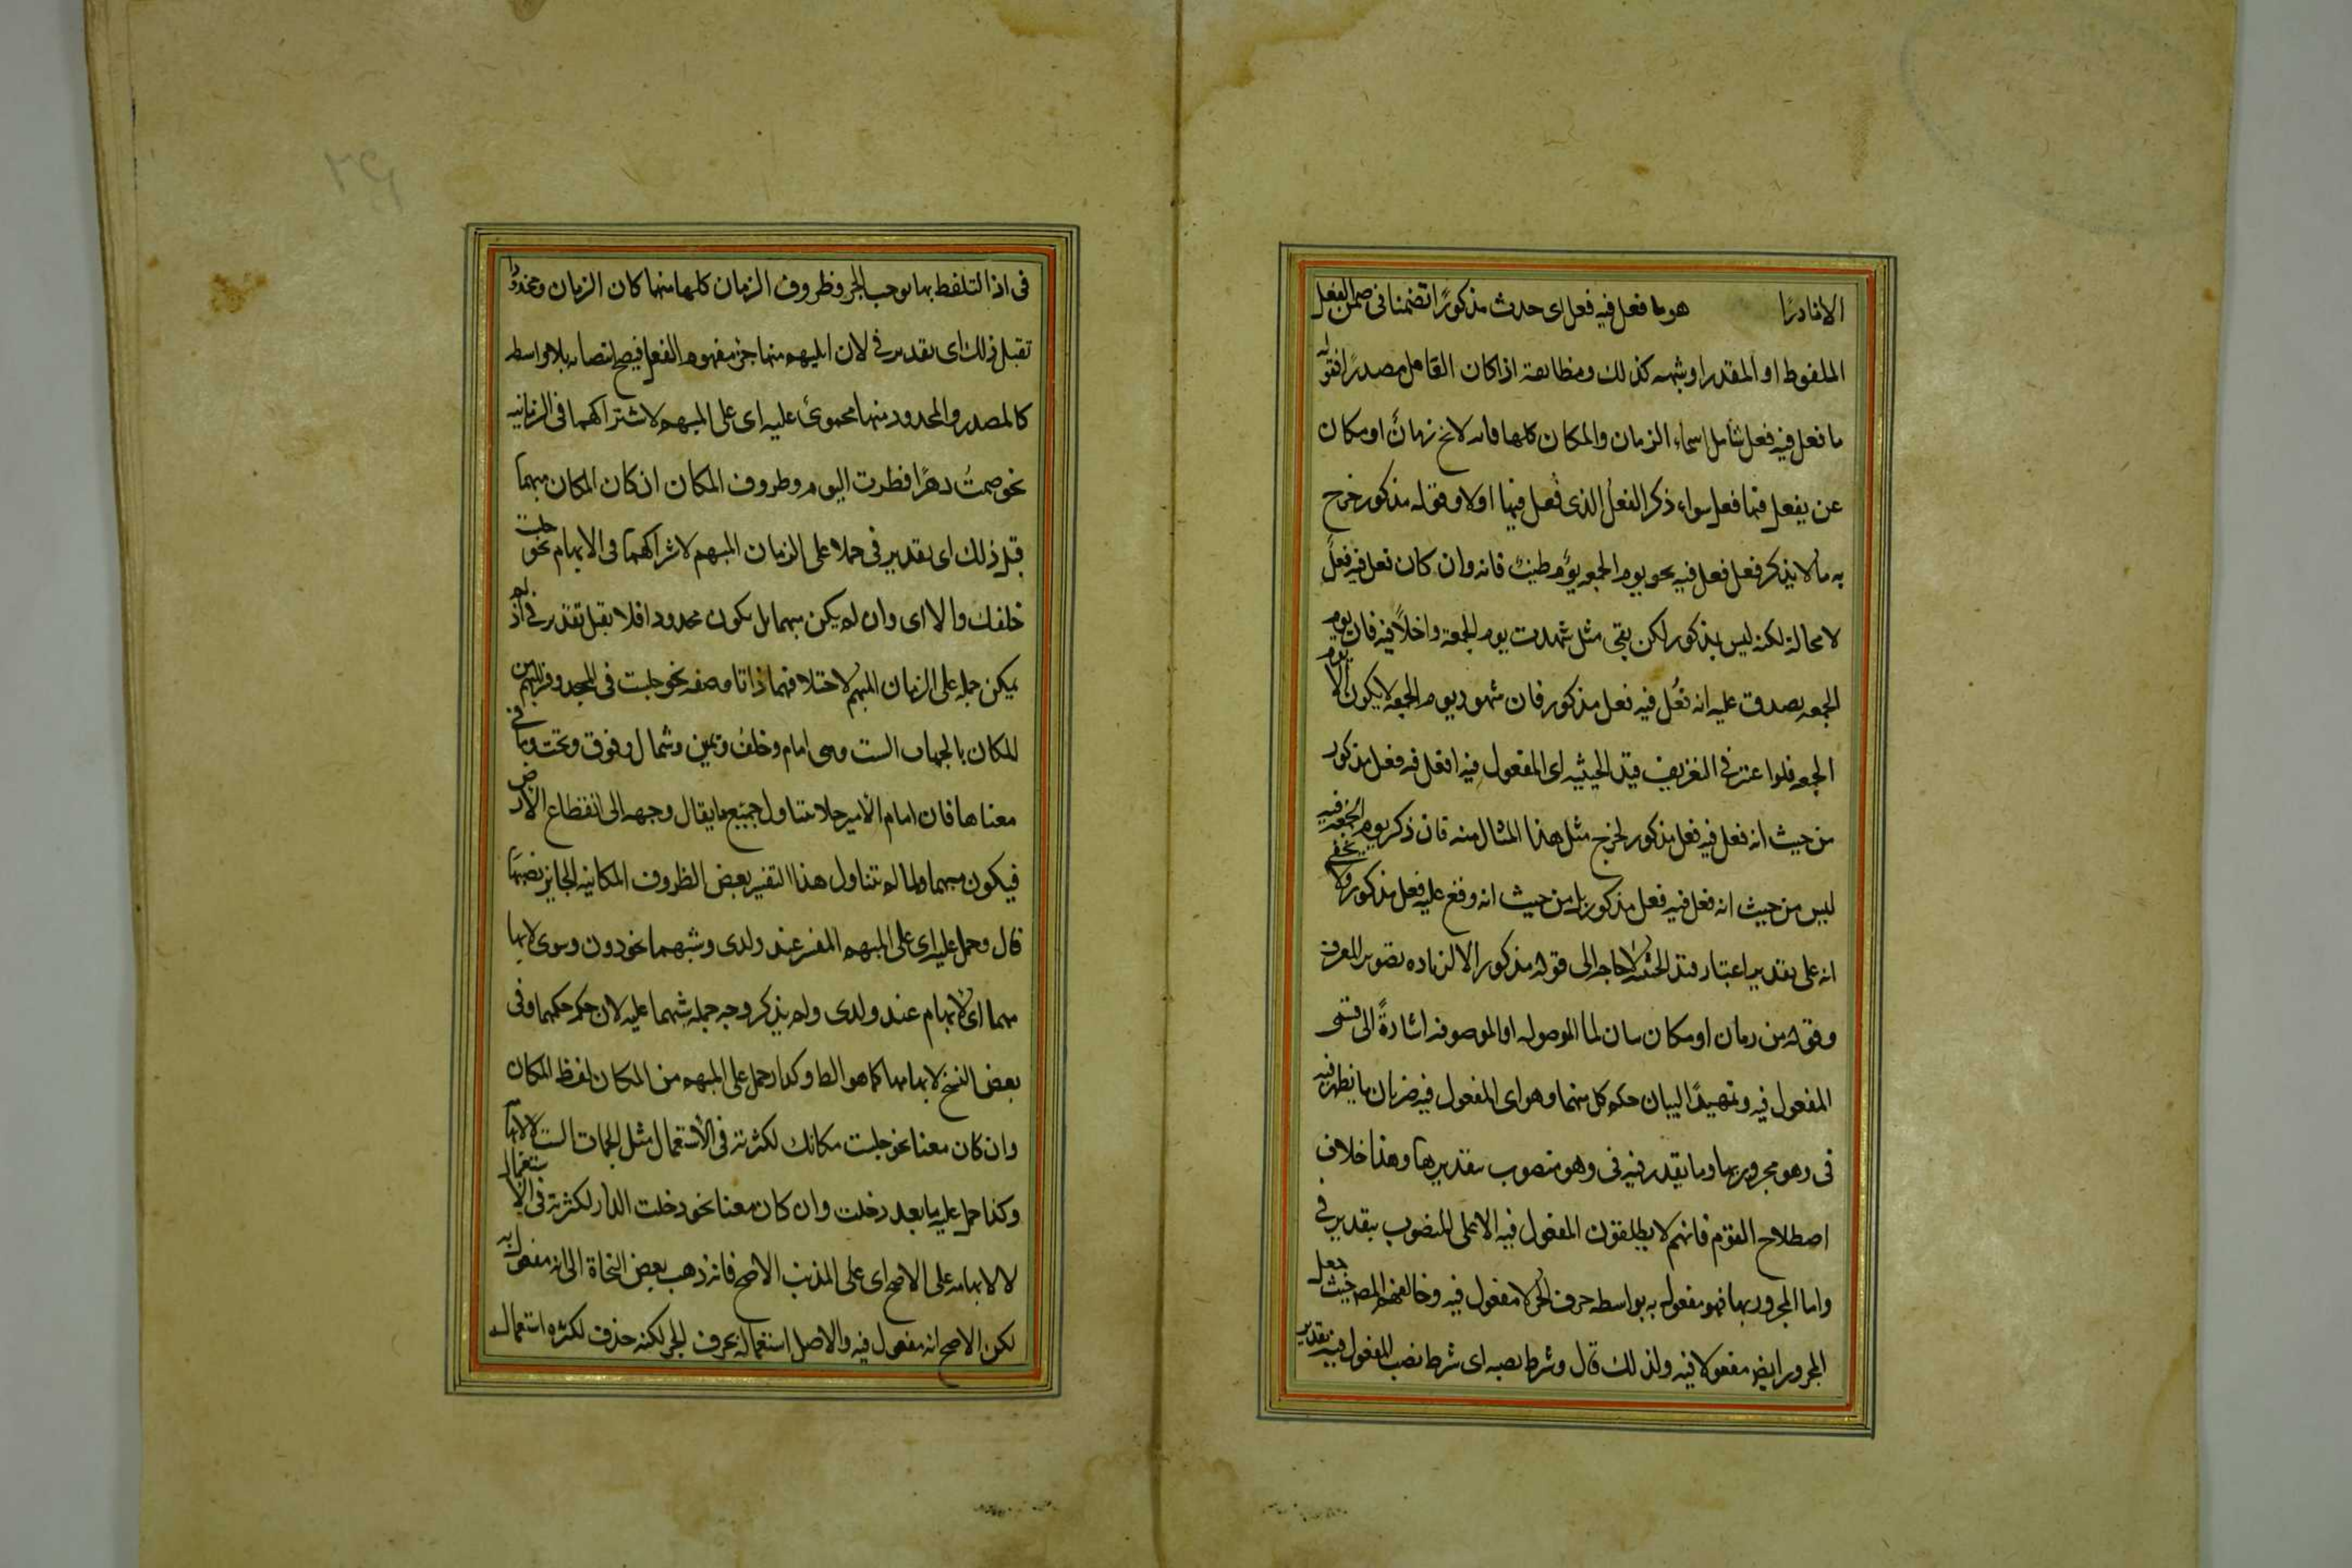 الا نادرًا هو ما فعل فيه فعل اى حدث مذكورًا تضمنا فى ضمن الفعل
الملفوظ او المقدر او شبهه كذلك ومطابقة اذا كان العامل مصدرًا فقوله
ما فعل فيه فعل شامل اسماء الزمان والمكان كلها فانه لا يخ زمانٌ او مكان
عن يفعل فيها فعل سواء ذكر الفعل الذى فُعل فيها اولا وقوله مذكور خرج
به ما لا يذكر فعل فعل فيه نحو يوم الجمعه يومٌ طيبٌ فانه وان كان فعل فيه فعلٌ
لا محالة لكنه ليس بمذكور لكن بقى مثل شهدت يوم الجمعة داخلاً فيه فان يوم
الجمعه يصدق عليه انه فُعل فيه فعل مذكور فان شهود يوم الجمعه لا يكون الا يوم
الجمعه فلو اعتبر فى التعريف قيد الحيثيه اى المفعول فيه ما فعل فيه فعل مذكور
من حيث انه فعل فيه فعل مذكور لخرج مثل هذا المثال منه فان ذكر يوم الجمعة فيه
ليس من حيث انه فعل فيه فعل مذكور بل من حيث انه وقع عليه فعل مذكور ولا يخفى
انه على تقدير اعتبار قيد الحيثيه لا حاجه الى قوله مذكور الا لزياده تصوير المعرف
وقوله من زمان او مكان بيان لما الموصوله او الموصوفه اشارةً الى قسمى
المفعول فيه وتمهيدًا لبيان حكم كل منهما وهو اى المفعول فيه ضربان ما يظهر فيه
فى وهو مجرور بها وما يقدر فيه فى وهو منصوب بتقديرها وهذا خلاف
اصطلاح القوم فانهم لا يطلقون المفعول فيه الا على المنصوب بتقدير فى
واما المجرور بها فهو مفعول به بواسطه حرف الجر لا مفعول فيه وخالفهم المص حيث جعل
المجرور ايضا مفعولا فيه ولذلك قال وشرط نصبه اى شرط نصب المفعول فيه تقدير
فى اذ التلفظ بها يوجب الجر وظروف الزمان كلها مبهما كان الزمان ومحدودا
تقبل ذلك اى تقدير فى لان المبهم منها جزء مفهوم الفعل فيصح انتصابه بلا واسطه
كالمصدر والمحدود منها محمول عليه اى على المبهم لاشتراكهما فى الزمانيه
نحو صمت دهرًا افطرت اليوم وظروف المكان ان كان المكان مبهما
قبل ذلك اى تقدير فى حملا على الزمان المبهم لاشراكهما فى الابهام نحو جلست
خلفك والا اى وان لم يكن مبهما بل يكون محدودا فلا يقبل تقدير فى اذ لم
يمكن حمله على الزمان المبهم لاختلافهما ذاتا وصفه نحو جلست فى المسجد وفسر المبهم من
المكان بالجهات الست وهى امام وخلف ويمين وشمال وفوق وتحت وما فى
معناها فان امام الامير مثلا متناول جميع ما يقال وجهه الى انقطاع الارض
فيكون مبهما ولما لم يتناول هذا التفسير بعض الظروف المكانيه الجايز نصبها
قال وحمل عليه اى على المبهم المفسر عند ولدى وشبههما نحو دون وسوى لابها
مهما اى لابهام عند ولدى ولم يذكر وجه حمل شبههما عليه لان حكمه حكمهما وفى
بعض النسخ لابهامها كما هو الظ وكذا حمل على المبهم من المكان لفظ المكان
وان كان معينا نحو جلست مكانك لكثرته فى الاستعمال مثل الجهات الست لا لابهامه
وكذا حمل عليه ما بعد دخلت وان كان معينا نحو دخلت الدار لكثرته فى الاستعمال
لا لابهامه على الاصح اى على المذهب الاصح فانه ذهب بعض النحاة الى انه مفعول به
لكن الاصح انه مفعول فيه والاصل استعماله بحرف الجر لكنه حذف لكثره استعماله